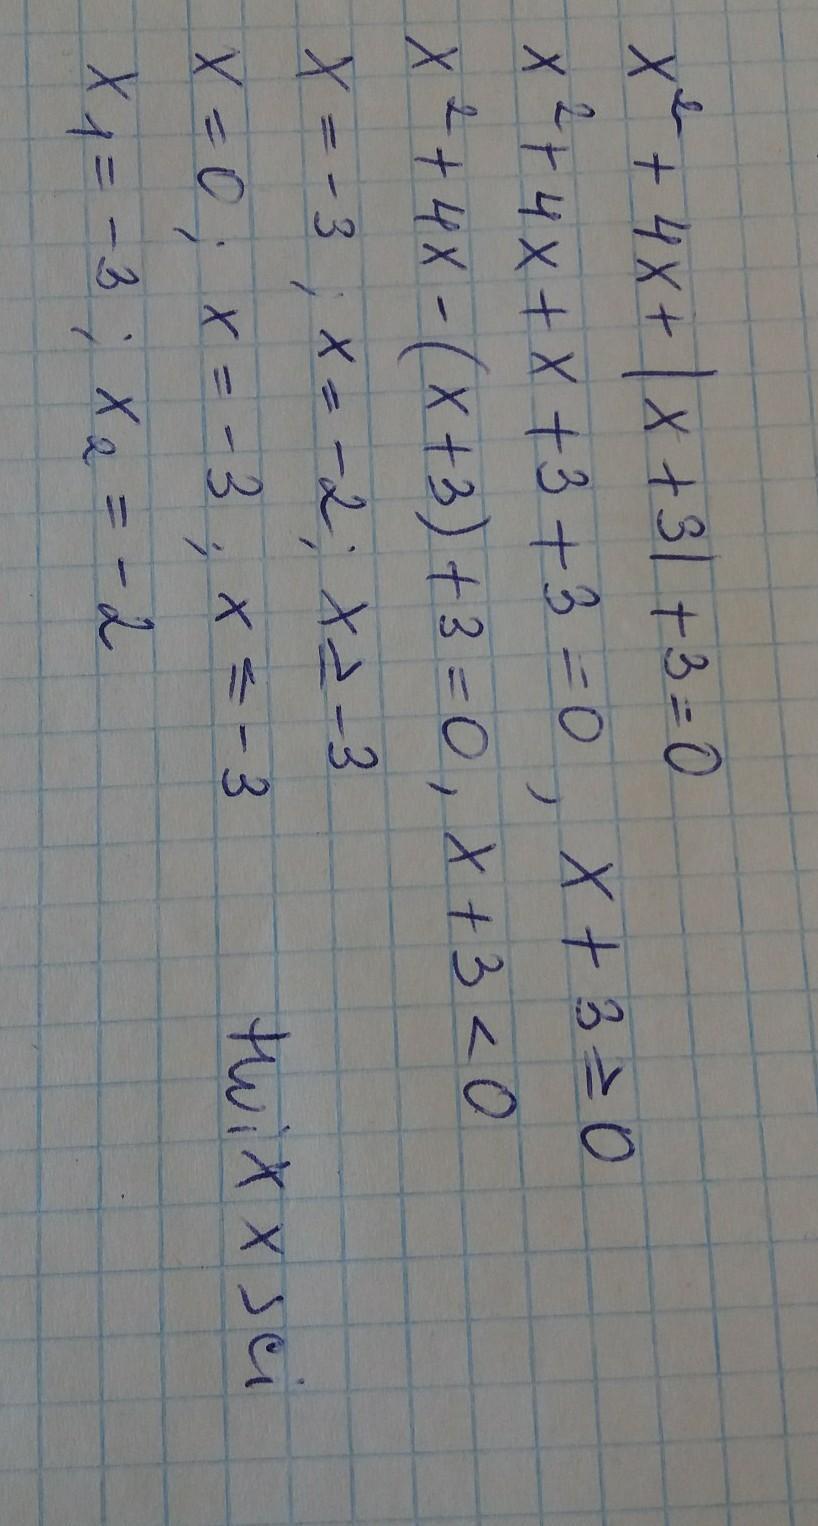 x² + 4x + |x + 3| + 3 = 0
x² + 4x + x + 3 + 3 = 0, x + 3 ≥ 0
x² + 4x - (x + 3) + 3 = 0, x + 3 < 0
x = -3; x = -2; x ≥ -3
x = 0; x = -3; x ≤ -3
twixxsci
x₁ = -3; x₂ = -2